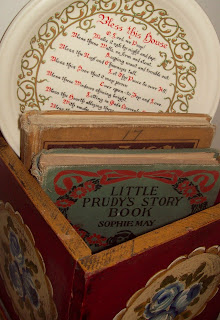 Bless this House
O Lord we Pray;
Make it safe by night and day..
Bless these Walls, so firm and stout.
Keeping want and trouble out..
Bless the Roof and Chimneys tall,
Let Thy Peace lie over all..
Bless this Door that it may prove
Ever open to Joy and Love
Bless these Windows shining bright,
Letting in God's Heavenly
Bless the Hearth ablazing there,
With smoke
LITTLE
PRUDY'S STORY
BOOK
SOPHIE MAY